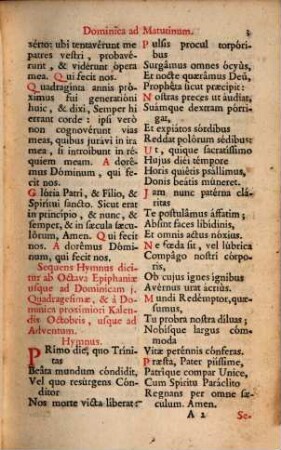 Dominica ad Matutinum. 3
vérto: ubi tentavérunt me
patres vestri, probavé-
runt, & vidérunt ópera
mea. Qui fecit nos.
Quadraginta annis pró-
ximus fui generatióni
huic, & dixi, Semper hi
errant corde: ipsi verò
non cognovérunt vias
meas, quibus jurávi in ira
mea, si introíbunt in ré-
quiem meam. A doré-
mus Dóminum, qui fe-
cit nos.
Glória Patri, & Fílio, &
Spirítui sancto. Sicut erat
in princípio, & nunc, &
semper, & in sæcula sæcu-
lórum, Amen. Qui fecit
nos. A dorémus Dómi-
num, qui fecit nos.
Sequens Hymnus dici-
tur ab Octava Epiphaniæ
usque ad Dominicam j.
Quadragesimæ, & à Do-
minica proximiori Kalen-
dis Octobris, usque ad
Adventum.
Hymnus.
PRimo die, quo Trini-
tas
Beáta mundum cóndidit,
Vel quo resúrgens Cón-
ditor
Nos morte victa líberat:
Pulsis procul torpóri-
bus
Surgámus omnes ócyùs,
Et nocte quærámus Deú,
Prophéta sicut præcipit:
Nostras preces ut áudiat,
Suámque dexteram pórri-
gat,
Et expiátos sórdibus
Reddat polórum sédibus:
Ut, quique sacratíssimo
Hujus diéi témpore
Horis quiétis psállimus,
Donis beátis múneret.
Jam nunc patérna clá-
ritas
Te postulámus áffatim;
Absint faces libídinis,
Et omnis actus nóxius.
Ne fœda sit, vel lúbrica
Compágo nostri córpo-
ris,
Ob cujus ignes ígnibus
Avérnus urat acriùs.
Mundi Redémptor, quǽ-
sumus,
Tu probra nostra díluas;
Nobísque largus cóm-
moda
Vitæ perénnis cónferas.
Præsta, Pater piíssime,
Patríque compar Unice,
Cum Spíritu Paráclito
Regnans per omne sæ-
culum. Amen.
A 2 Se-